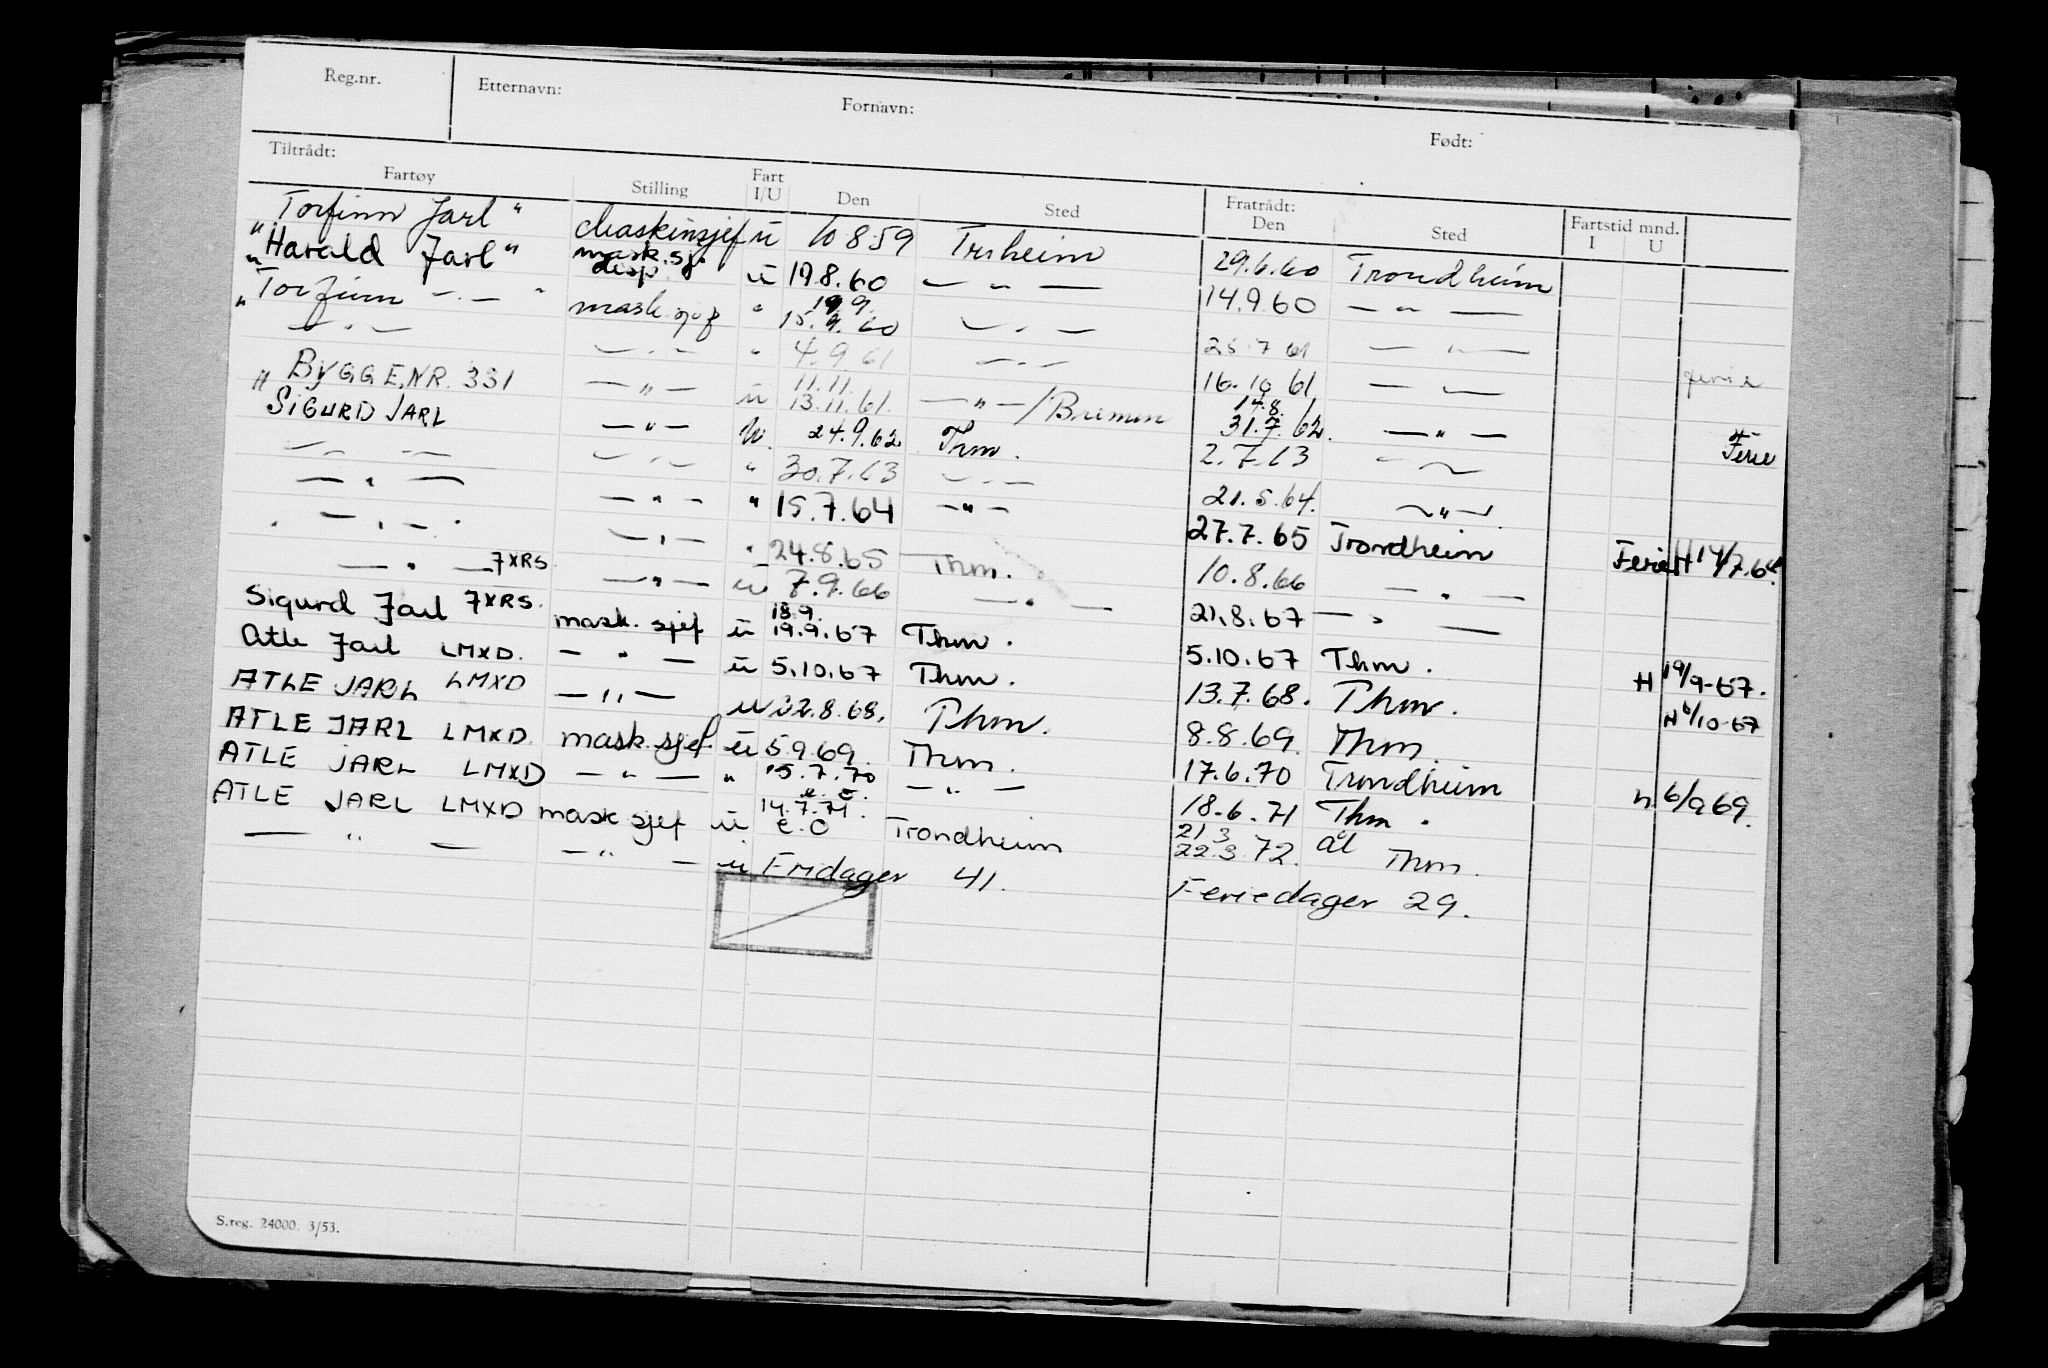 Reg.nr. Etternavn: Fornavn: Født:
Tiltrådt: Fratrådt:
Fartøy Stilling Fart I/U Den Sted Den Sted Fartstid mnd. I U
"Torfinn Jarl" Maskinsjef u 10 8 59 Trheim 29.6.60 Trondheim
"Harald Jarl" mask.sj. disp u 19.8.60 — " — 14.9.60 — " —
"Torfinn — " — " mask.sjef " 19 9. 15.9.60 — " — 25.7 61 — " —
— " — — " — " 4.9.61 — " — 16.10 61 — " — ferie
" BYGGE.NR. 331 — " — u 11.11. 13.11.61. — " — / Bremen 14.8. 31.7.62. — " —
SIGURD JARL — " — u. 24.9.62 Thm. 2.7.63 — " — Ferie
— " — — " — " 30.7.63 — " — 21.5.64. — " —
— " — — " — " 15.7.64 — " — 27.7.65 Trondheim Ferie H 14/7.64.
— " — — " — " 24.8.65 Thm. 10.8.66 — " —
— " — 7XRS — " — u 7.9.66 — " — 21.8.67 — " —
Sigurd Jarl 7XRS. mask. sjef u 18.9. 19.9.67 Thm. 5.10.67 Thm. H 19/9-67.
Atle Jarl LMXD. — " — u 5.10.67 Thm. 13.7.68. Thm. H 6/10-67
ATLE JARL LMXD — " — u 22.8.68. Thm. 8.8.69. Thm.
ATLE JARL LMXD. mask.sjef u 5.9.69. Thm. 17.6.70 Trondheim h 6/9 69.
ATLE JARL LMXD — " — " 15.7.70 — " — 18.6.71 Thm.
ATLE JARL LMXD mask sjef u 14.7.71. e.O Trondheim 21 3 22.3.72. ål Thm.
— " — — " — u Fridager 41. Feriedager 29.
S.reg. 24000. 3/53.